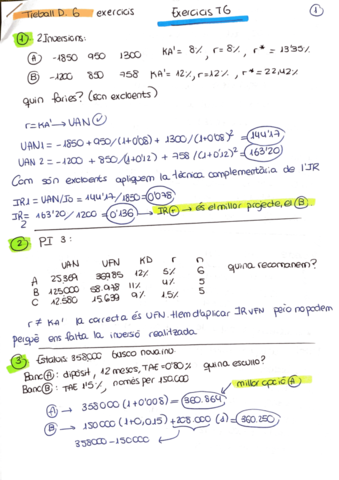 Treball D. 6 exercicis Exercicis T6 1
1 2 Inversions:
A -1850 950 1300 KA' = 8%, r = 8%, r* = 13'95%
B -1200 850 758 KA' = 12%, r = 12%, r* = 22'42%
quin faries? (són excloents)
r = KA' → VAN
VAN1 = -1850 + 950/(1+0'08) + 1300/(1+0'08)² = 144'17
VAN 2 = -1200 + 850/(1+0'12) + 758/(1+0'12)² = 163'20
Com són excloents apliquem la tècnica complementària de l'IR
IR1 = VAN/I0 = 144'17/1850 = 0'078
IR2 = 163'20/1200 = 0'136 → IR → és el millor projecte, el B.
2 PI 3:
VAN VFN KD r n
A 25.369 12% 5% 6 quina recomanem?
B 125000 11% 4% 5
C 12.580 15.639 9% 1.5% 5
r ≠ KA' la correcta és VFN. Hem d'aplicar IR VFN però no podem
perquè ens falta la inversió realitzada.
3 Estalvis 358000 busco
Banc A: dipòsit, 12 mesos, TAE=0'80% quina escullo?
Banc B: TAE 1'5%, només per 150.000 millor opció A
A → 358000 (1+0'008) = 360.864
B → 150000 (1+0,015) + 208.000 (1) = 360.250
358000 - 150000